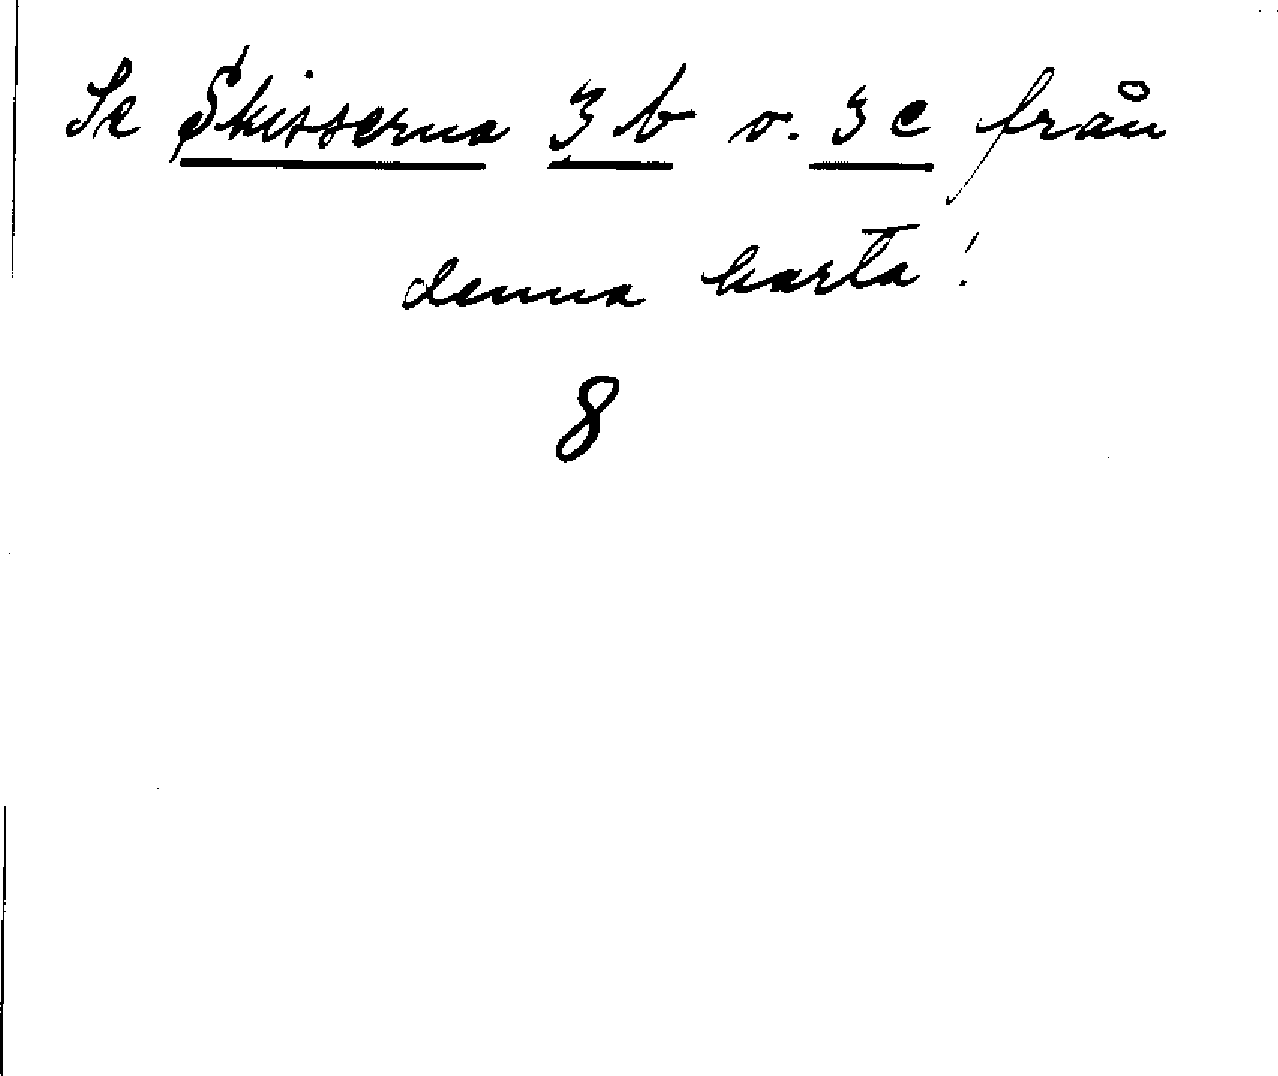 Se Skisserna 3 b o. 3 c från
denna karta!
8